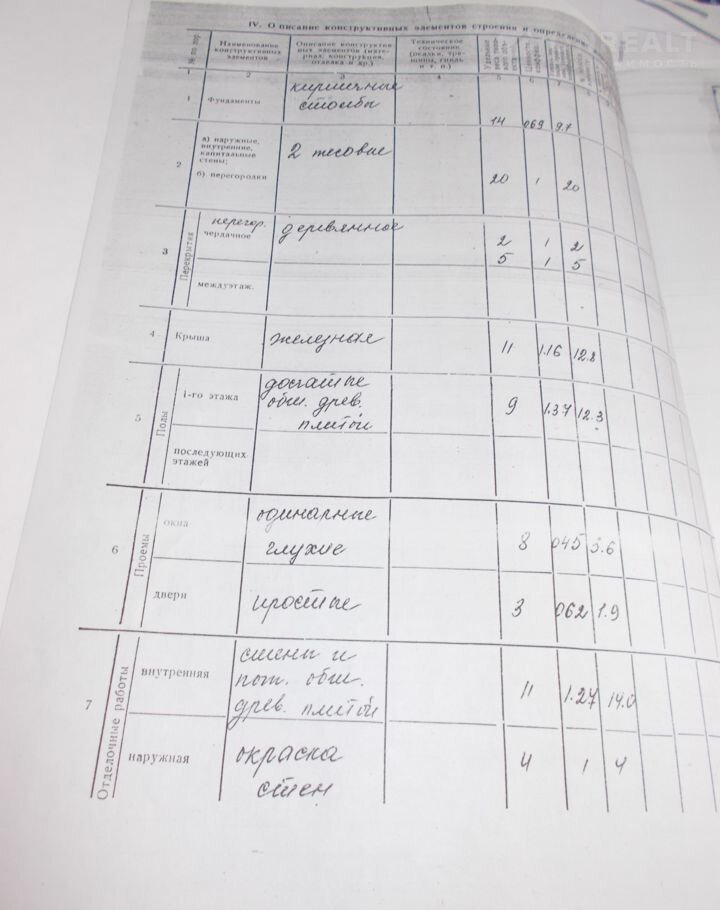 IV. Описание конструктивных элементов строения и определение
REALT
ИМОСТЬ
№ по пор.
Наименование конструктивных элементов
Описание конструктив
ных элементов (мате-
риал, конструкция,
отделка и пр.)
Техническое
состояние
(осадки, тре-
щины, гниль
и т. п.)
1 2 3 4 5 6 7
1 Фундаменты
кирпичные
столбы
14 069 9.7
2
а) наружные,
внутренние,
капитальные
стены;
2 тесовые
б) перегородки
20 1 20
3 Перекрытия
перегор.
чердачное
деревянное
2 1 2
5 1 5
междуэтаж.
4 Крыша
железная
11 1.16 12.8
5 Полы
1-го этажа
дощатые
обш. древ.
плитой
9 1.37 12.3
последующих
этажей
6 Проемы
окна
одинарные
глухие
8 045 3.6
двери
простые
3 062 1.9
7 Отделочные работы
внутренняя
стены и
пот. обш.
древ. плитой
11 1.27 14.0
наружная
окраска
стен
4 1 4